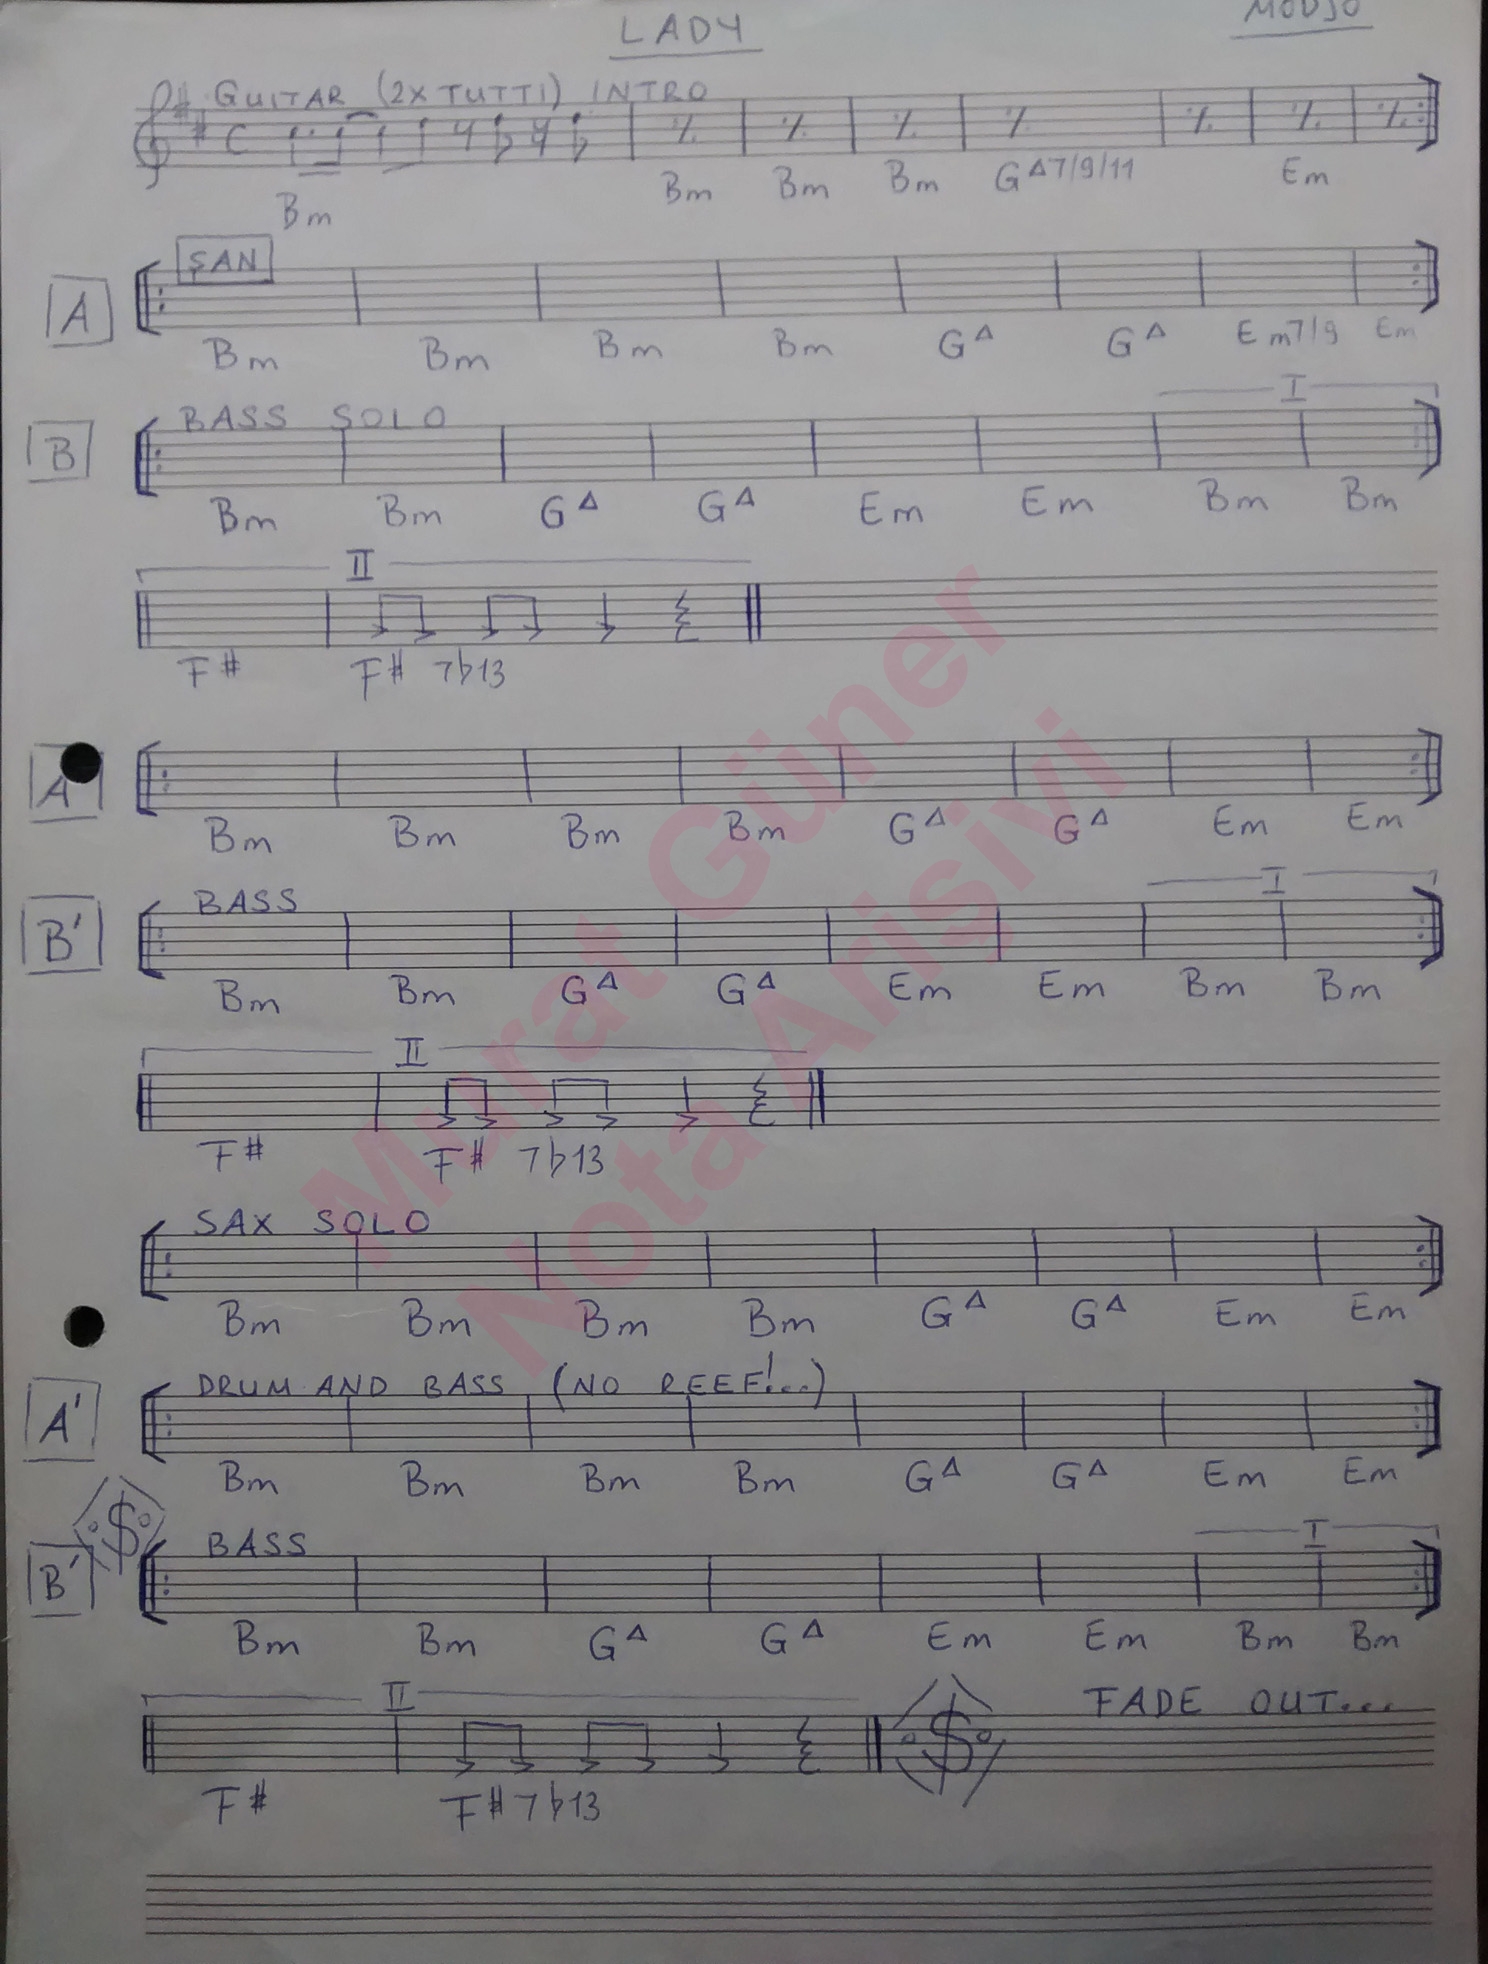 LADY
MODJO
GUITAR (2X TUTTI) INTRO
Bm Bm Bm Bm G∆7/9/11 Em
ŞAN
A
Bm Bm Bm Bm G∆ G∆ Em7/9 Em
I
B BASS SOLO
Bm Bm G∆ G∆ Em Em Bm Bm
II
F# F# 7b13
A
Bm Bm Bm Bm G∆ G∆ Em Em
I
B' BASS
Bm Bm G∆ G∆ Em Em Bm Bm
II
F# F# 7b13
SAX SOLO
Bm Bm Bm Bm G∆ G∆ Em Em
A' DRUM AND BASS (NO REEF!...)
Bm Bm Bm Bm G∆ G∆ Em Em
I
B' BASS
Bm Bm G∆ G∆ Em Em Bm Bm
II
FADE OUT...
F# F#7b13
Murat Güner
Nota Arişivi